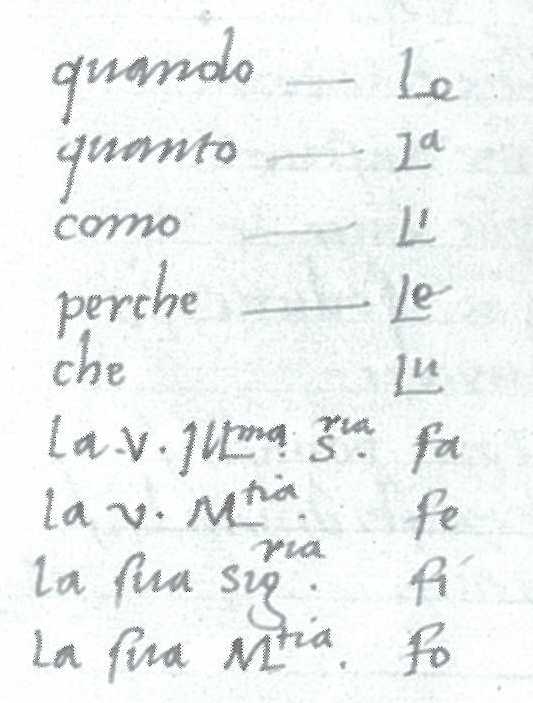 quando — Lo
quanto — Lᵃ
como — Lⁱ
perche — Le
che Lu
La.V. Illᵐᵃ. S.ʳⁱᵃ fa
La V. Mᵗⁱᵃ. fe
La sua sigʳⁱᵃ. fi
La sua Mᵗⁱᵃ. fo